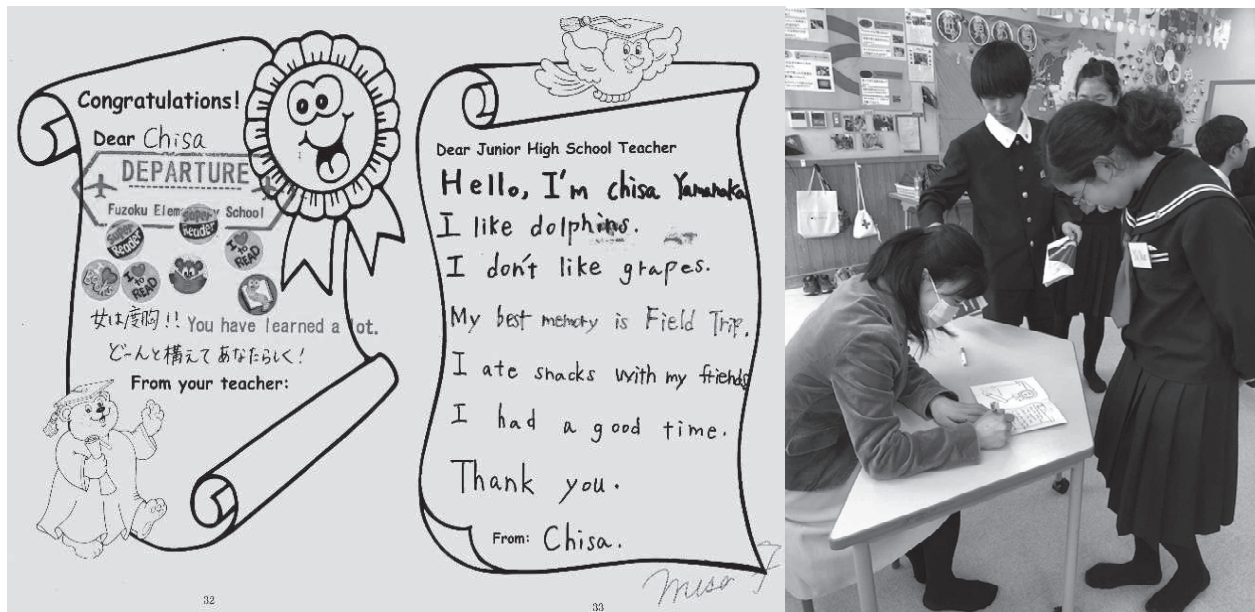 Congratulations!
Dear Chisa
DEPARTURE
Fuzoku Elementary School
Super Reader
Super Reader
I ♥ to READ
I ♥ to READ
女は度胸!! You have learned a lot.
どーんと構えてあなたらしく!
From your teacher:
32
Dear Junior High School Teacher
Hello, I'm chisa Yamanaka
I like dolphins.
I don't like grapes.
My best memory is Field Trip.
I ate snacks with my friends
I had a good time.
Thank you.
From: Chisa.
33